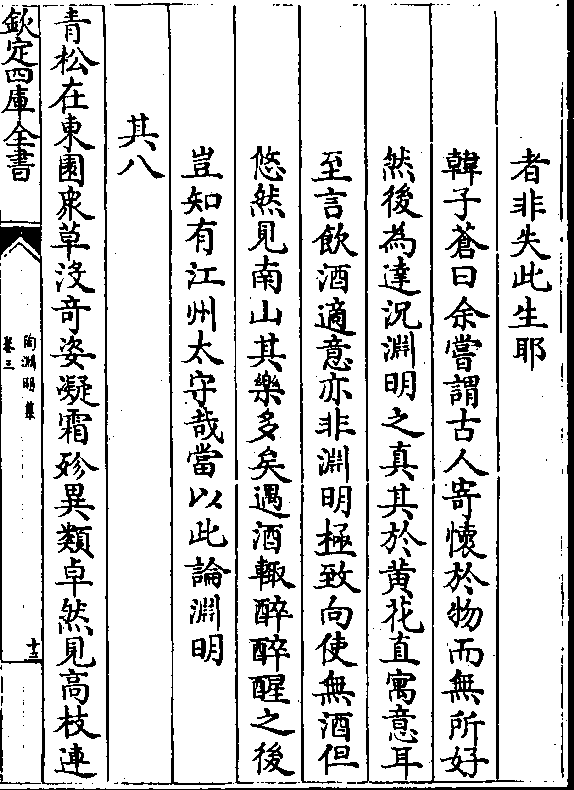 者非失此生耶
韓子蒼曰余嘗謂古人寄懷於物而無所好
然後為達況淵明之真其於黄花直寓意耳
至言飲酒適意亦非淵明極致向使無酒但
悠然見南山其樂多矣遇酒輒醉醉醒之後
豈知有江州太守哉當以此論淵明
其八
青松在東園衆草沒奇姿凝霜殄異類卓然見高枝連
欽定四庫全書
陶淵明集
卷三
十三